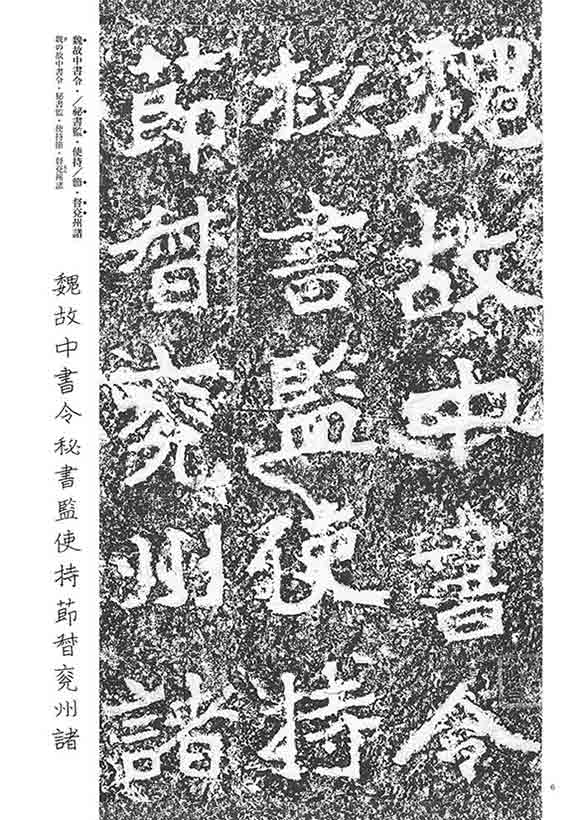 魏故中書令
秘書監使持
節督兖州諸
魏故中書令・／祕書監・使持／節・督兗州諸
魏の故中書令・秘書監・使持節・督兗州諸
魏故中書令秘書監使持節督兖州諸
6